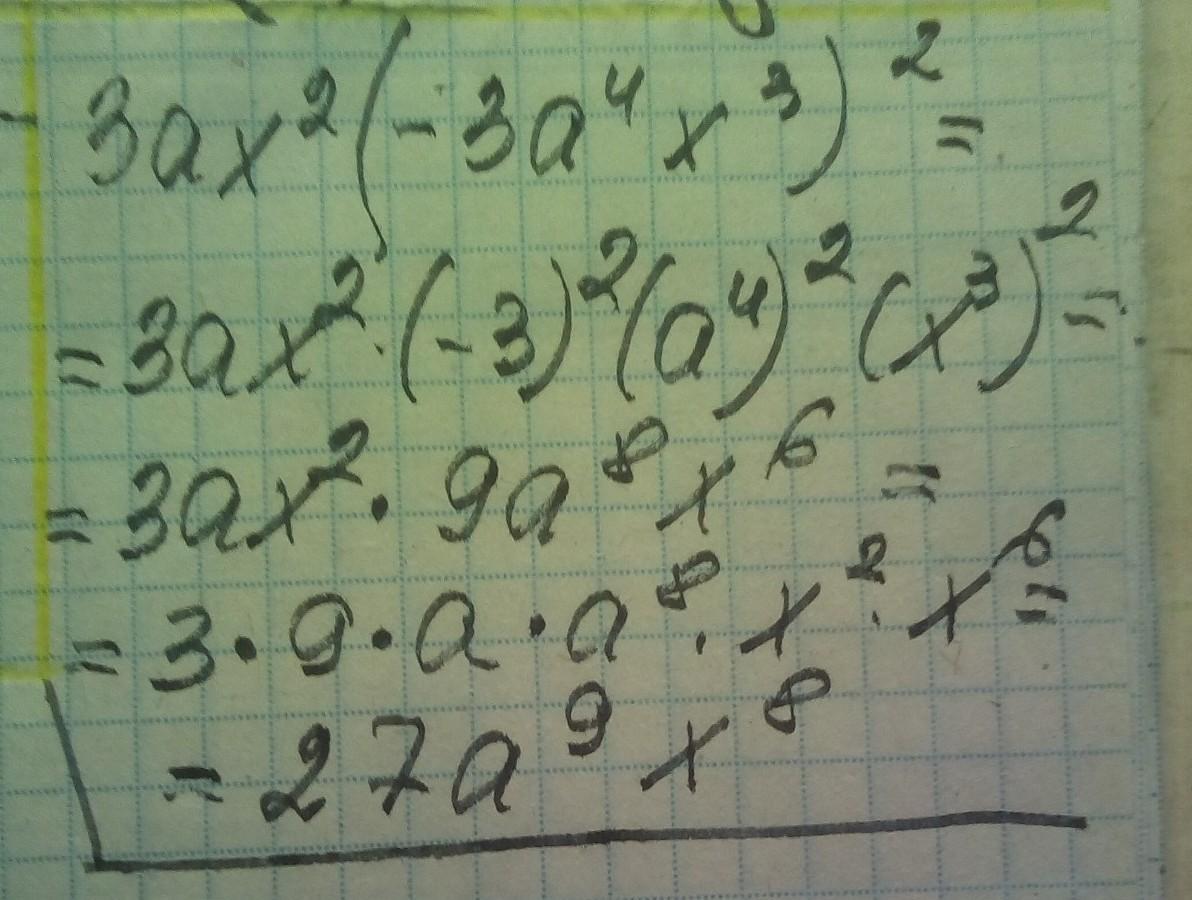 3ax²(-3a⁴x³)² =
= 3ax² · (-3)² (a⁴)² (x³)² =
= 3ax² · 9a⁸x⁶ =
= 3 · 9 · a · a⁸ · x² · x⁶ =
= 27a⁹x⁸